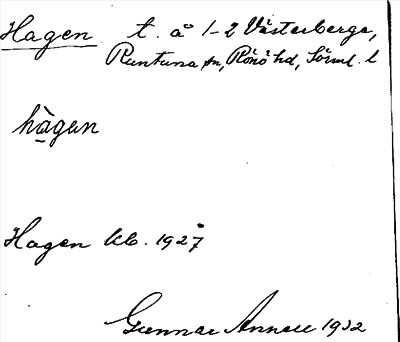 Hagen t. å 1-2 Västerberga,
Runtuna sn, Rönö hd, Sörml. l
hàgen
Hagen kb. 1927
Gunnar Annell 1932